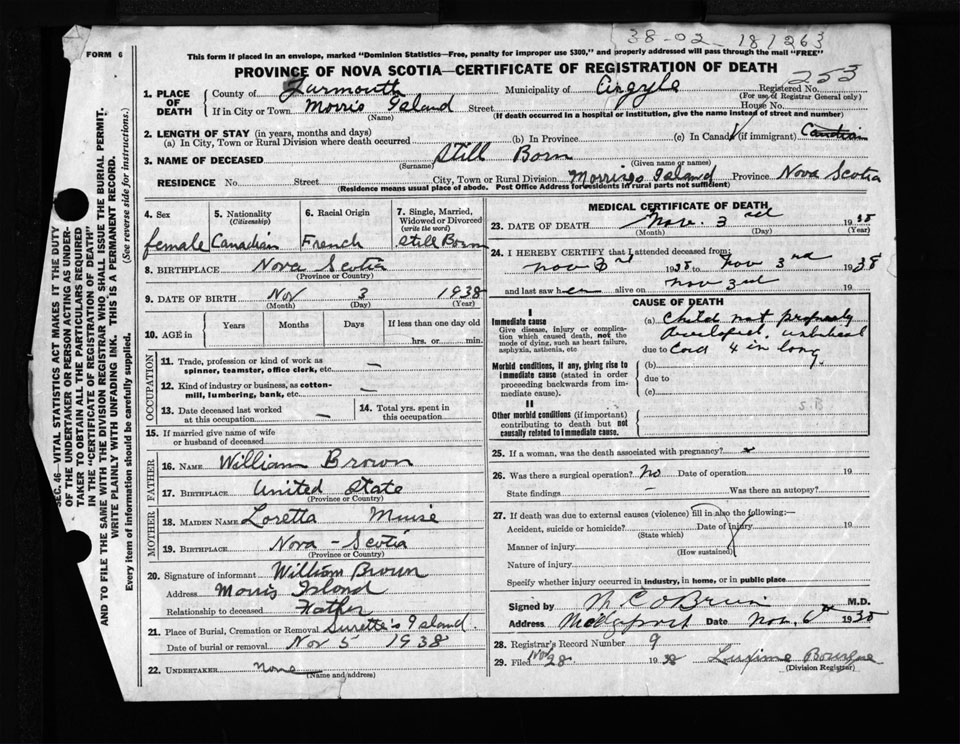 38-02 181263
FORM 6
This form if placed in an envelope, marked "Dominion Statistics—Free, penalty for improper use $300," and properly addressed will pass through the mail "FREE"
PROVINCE OF NOVA SCOTIA—CERTIFICATE OF REGISTRATION OF DEATH
253
1. PLACE OF DEATH County of Yarmouth Municipality of Argyle Registered No.
(For use of Registrar General only)
If in City or Town Morris Island Street House No.
(Name) (If death occurred in a hospital or institution, give the name instead of street and number)
2. LENGTH OF STAY (in years, months and days)
(a) In City, Town or Rural Division where death occurred (b) In Province (c) In Canada (if immigrant) Canadian
3. NAME OF DECEASED Still Born
(Surname) (Given name or names)
RESIDENCE No. Street City, Town or Rural Division Morris Island Province Nova Scotia
(Residence means usual place of abode. Post Office Address for residents in rural parts not sufficient)
4. Sex
female
5. Nationality
(Citizenship)
Canadian
6. Racial Origin
French
7. Single, Married, Widowed or Divorced
(write the word)
Still Born
8. BIRTHPLACE Nova Scotia
(Province or Country)
9. DATE OF BIRTH Nov 3 1938
(Month) (Day) (Year)
10. AGE in Years Months Days If less than one day old
hrs. or min.
OCCUPATION
11. Trade, profession or kind of work as spinner, teamster, office clerk, etc. —
12. Kind of industry or business, as cotton-mill, lumbering, bank, etc. —
13. Date deceased last worked at this occupation —
14. Total yrs. spent in this occupation
15. If married give name of wife or husband of deceased
FATHER
16. NAME William Brown
17. BIRTHPLACE United State
(Province or Country)
MOTHER
18. MAIDEN NAME Loretta Muise
19. BIRTHPLACE Nova-Scotia
(Province or Country)
20. Signature of informant William Brown
Address Morris Island
Relationship to deceased Father
21. Place of Burial, Cremation or Removal Surette's Island
Date of burial or removal Nov 5 1938
22. UNDERTAKER none
(Name and address)
MEDICAL CERTIFICATE OF DEATH
23. DATE OF DEATH Nov. 3rd 1938
(Month) (Day) (Year)
24. I HEREBY CERTIFY that I attended deceased from:
Nov 3rd 1938 to Nov 3rd 1938
and last saw her alive on Nov 3rd 19
CAUSE OF DEATH
I
Immediate cause
Give disease, injury or complication which caused death, not the mode of dying, such as heart failure, asphyxia, asthenia, etc
(a) Child not properly
developed, umbilical
due to Cord 4 in long
Morbid conditions, if any, giving rise to immediate cause (stated in order proceeding backwards from immediate cause).
(b)
due to
(c)
II
Other morbid conditions (if important) contributing to death but not causally related to immediate cause.
S.B
25. If a woman, was the death associated with pregnancy?
26. Was there a surgical operation? no Date of operation 19
State findings — Was there an autopsy?
27. If death was due to external causes (violence) fill in also the following:—
Accident, suicide or homicide? Date of injury 19
(State which)
Manner of injury
(How sustained)
Nature of injury
Specify whether injury occurred in industry, in home, or in public place
Signed by M.D.
Address Date Nov. 6th 1938
28. Registrar's Record Number 9
29. Filed Nov 28 1938
(Division Registrar)
SEC. 46—VITAL STATISTICS ACT MAKES IT THE DUTY
OF THE UNDERTAKER OR PERSON ACTING AS UNDER-
TAKER TO OBTAIN ALL THE PARTICULARS REQUIRED
IN THE "CERTIFICATE OF REGISTRATION OF DEATH"
AND TO FILE THE SAME WITH THE DIVISION REGISTRAR WHO SHALL ISSUE THE BURIAL PERMIT.
WRITE PLAINLY WITH UNFADING INK. THIS IS A PERMANENT RECORD.
Every item of information should be carefully supplied. (See reverse side for instructions.)